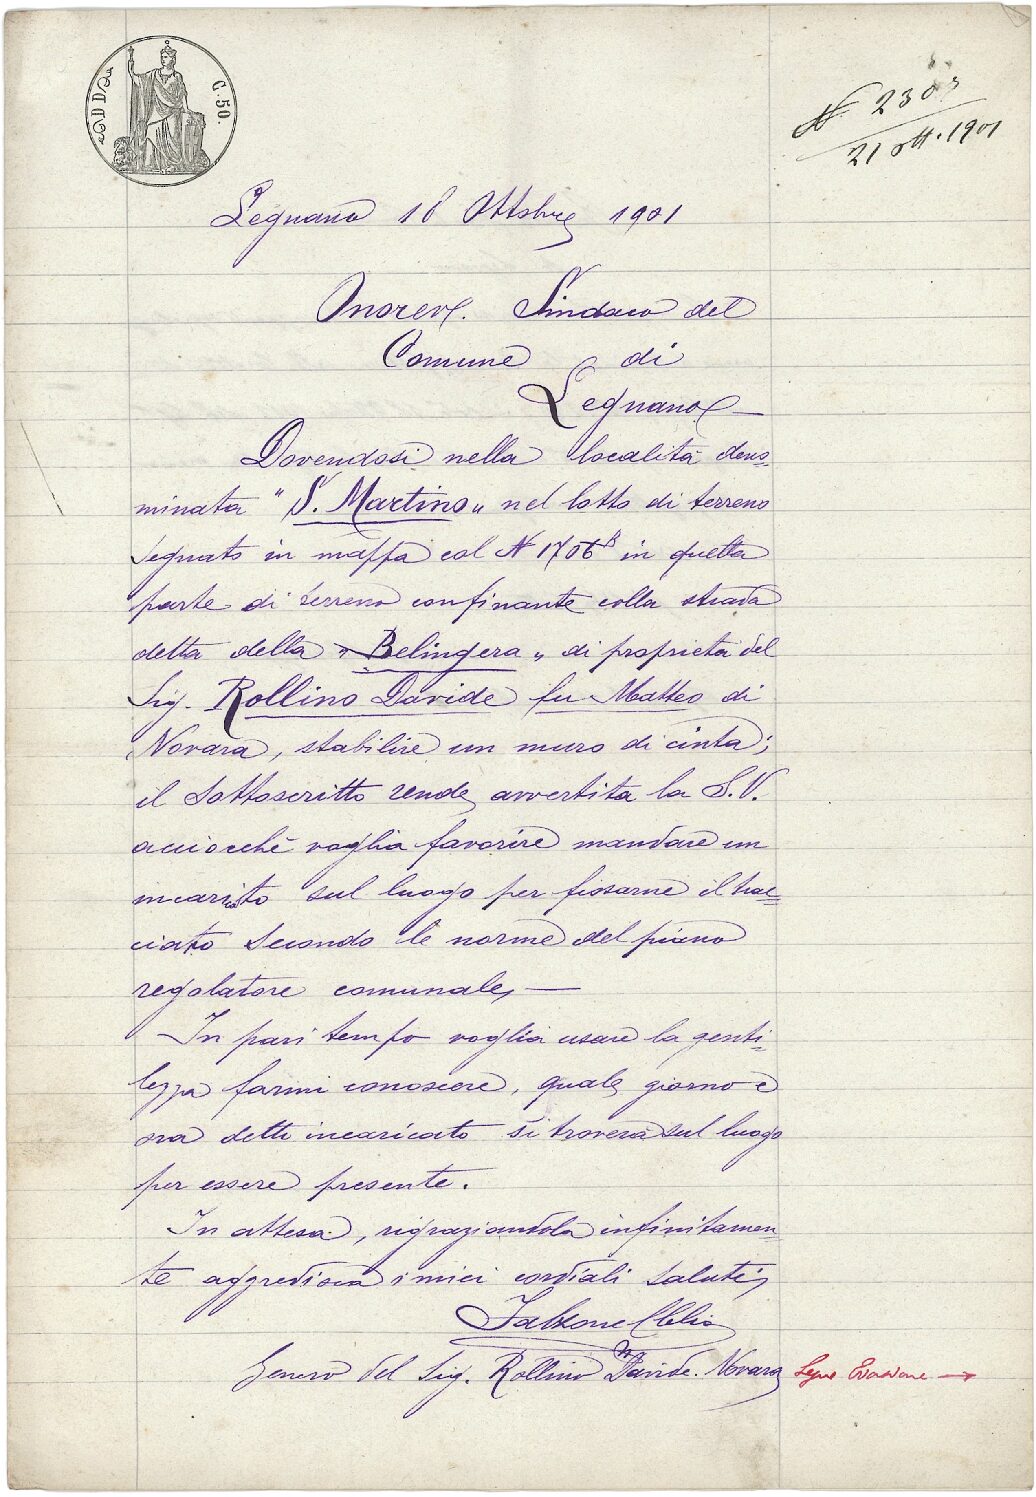 C. 50.
N 230
21 ott. 1901
Legnano 18 Ottobre 1901
Onorev. Sindaco del
Comune di
Legnano —
Dovendosi nella località deno=
minata "S. Martino„ nel lotto di terreno
segnato in mappa col N 1706 B in quella
parte di terreno confinante colla strada
detta della "Belingera„ di proprietà del
Sig. Rollino Davide fu Matteo di
Novara, stabilire un muro di cinta;
il sottoscritto rende avvertita la S.V.
acciocchè voglia favorire mandare un
incaricato sul luogo per fissarne il trac=
ciato secondo le norme del piano
regolatore comunale, —
In pari tempo voglia usare la genti=
lezza farmi conoscere, quale giorno e
ora detto incaricato si troverà sul luogo
per essere presente.
In attesa, rigraziandola infinitamen=
te aggredisca i miei cordiali saluti,
Clelio
Genero del Sig. Rollino Davide. Novara
Segue Evasione →